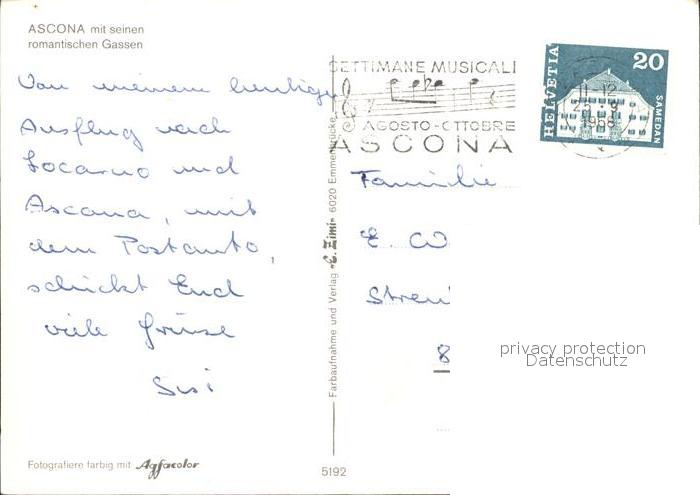 ASCONA mit seinen
romantischen Gassen
Von meinem heutigen
Ausflug nach
Locarno und
Ascona, mit
dem Postauto,
schickt Euch
viele Grüsse
Susi
Fotografiere farbig mit Agfacolor
Farbaufnahme und Verlag «E. Zimi» 6020 Emmenbrücke
5192
SETTIMANE MUSICALI
AGOSTO-OTTOBRE
ASCONA
11-12
1968
HELVETIA
20
SAMEDAN
Familie
E. W
Streu
8
privacy protection
Datenschutz